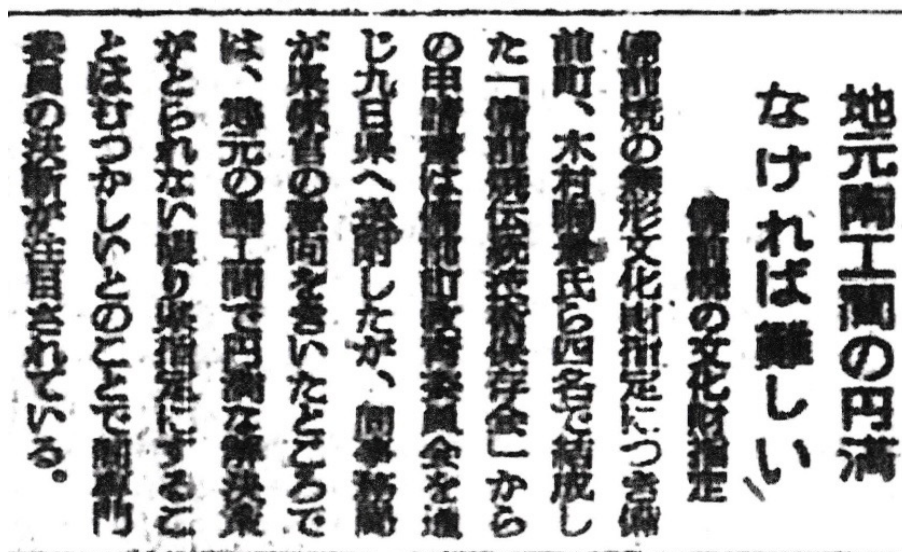 地元陶工間の円満
なければ難しい
備前焼の文化財指定
備前焼の無形文化財指定につき備
前町、木村 氏ら四名で結成し
た「備前焼伝統技術保存会」から
の申請書は 教育委員会を通
じ九日県へ送附したが、同事務局
が県係官の意向をきいたところで
は、地元の陶工間で円満な解決策
がとられない限り県指定にするこ
とはむつかしいとのことで同専門
委員の決断が注目されている。